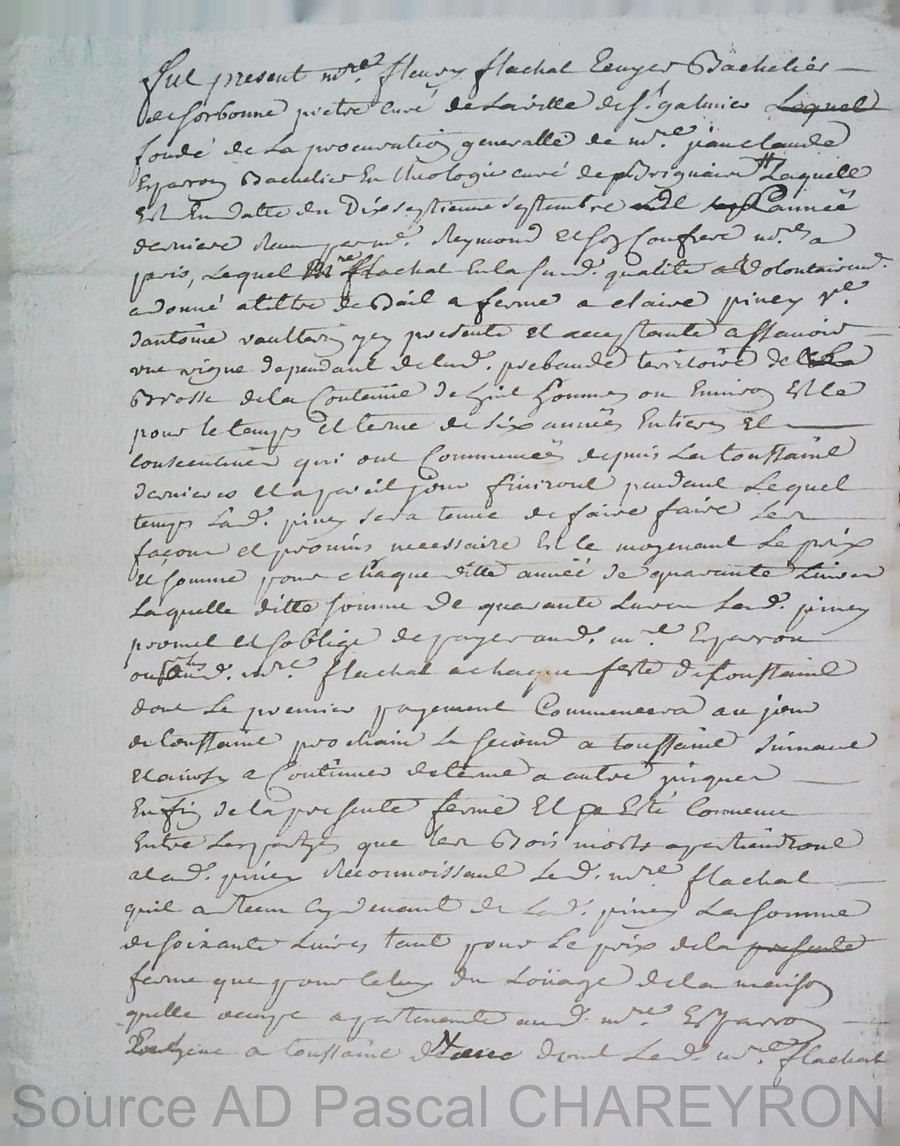 fut present mre fleury flachat Ecuyer Bachelier
de sorbonne pretre curé de la ville de st galmier Lequel
fondé de la procuration generalle de mre jean claude
Esparron Bachelier En theologie curé de Laquelle
Est En datte du Dix septieme septembre L'année
derniere Recu par me Reymond et son Confrere nres a
paris, Lequel mre flachat En la susd. qualité a volontairemt
a donné a titre de Bail a ferme a claire piney ve
d'antoine icy presente et acceptante assavoir
une vigne dependant de lad. prebande territoire de la
Brosse de la Contenue de huit hommes ou Environ Et ce
pour le temps et terme de six années Entieres et
consecutives qui ont Commencées depuis La toussaint
derniere et a pareil jour finiront pendant Lequel
temps Lad. piney sera tenue de faire faire Les
façons et provins necessaire Et ce moyenant Le prix
et somme pour chaque ditte année de quarante Livres
Laquelle ditte somme de quarante Livres Lad. piney
promet et s'oblige de payer aud. mre Esparron
ou aud. mre flachat a chaque feste de toussaint
dont Le premier payement Commencera au jour
de toussaint prochain Le second a toussaint suivant
et ainsy a Continuer de terme a autre jusques
En fin de la presente ferme Et Esté Convenu
Entre Les parties que les Bois morts apartiendront
a lad. piney Reconnoissant Led. mre flachat
quil a Receu cy devant de Lad. piney La somme
de soixante Livres tant pour Le prix de la presente
ferme que pour celuy du Loüage de la maison
quelle occupe apartenante aud. mre Esparron
a toussaint dont Led. mre flachat
Source AD Pascal CHAREYRON